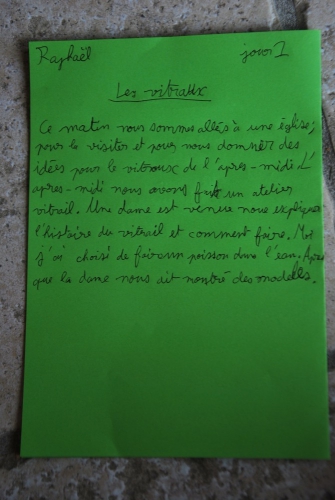 Raphaël jour 1
Les vitraux
Ce matin nous sommes allés à une église,
pour la visiter et pour nous donner des
idées pour le vitraux de l'apres-midi. L'
apres-midi nous avons fait un atelier
vitrail. Une dame est venue nous expliquer
l'histoire du vitrail et comment faire. Moi
j'ai choisi de faire un poisson dans l'eau. Après
que la dame nous ait montré des modells.